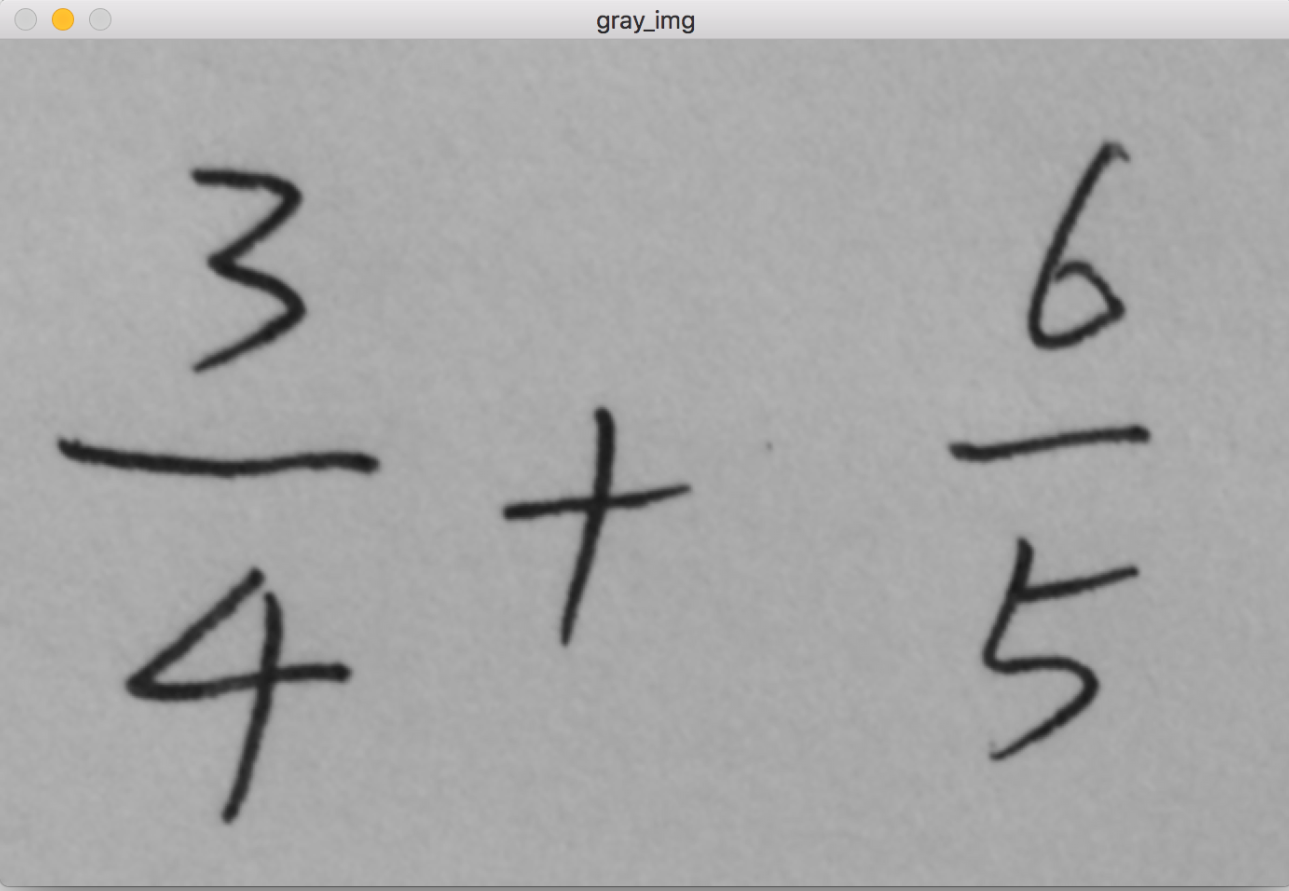 gray_img
3/4 + 6/5